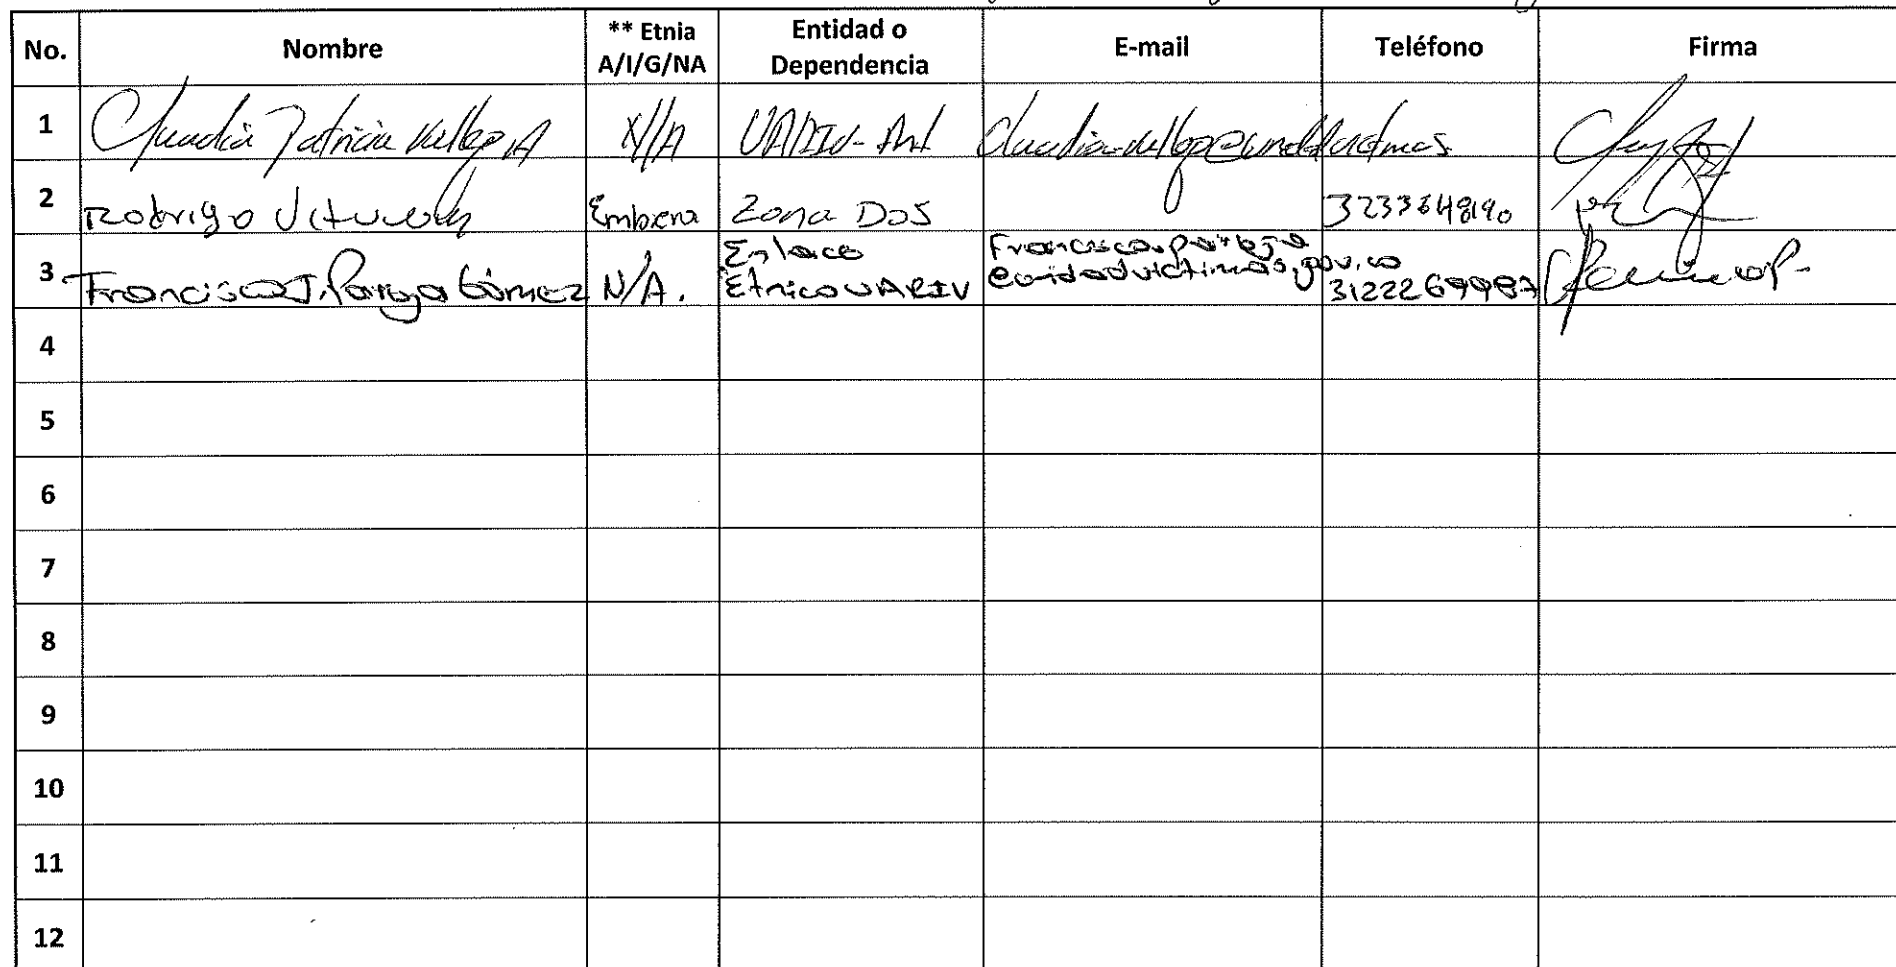 No. Nombre ** Etnia A/I/G/NA Entidad o Dependencia E-mail Teléfono Firma
1 Claudia Patricia Vallejo A N/A UARIV-Ant
2 Rodrigo Embera Zona Dos 3233648190
3 Francisco J. Pareja Gómez N/A. Enlace Étnico UARIV Francisco.pareja@unidadvictimas.gov.co 3122269987
4
5
6
7
8
9
10
11
12